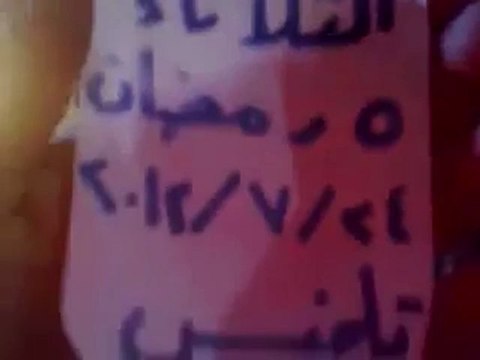 الثلاثاء
٥ رمضان
٢٠١٢/٧/٢٤
تلفيتا